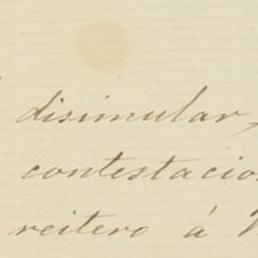 disimular,
contestacio
reitero á